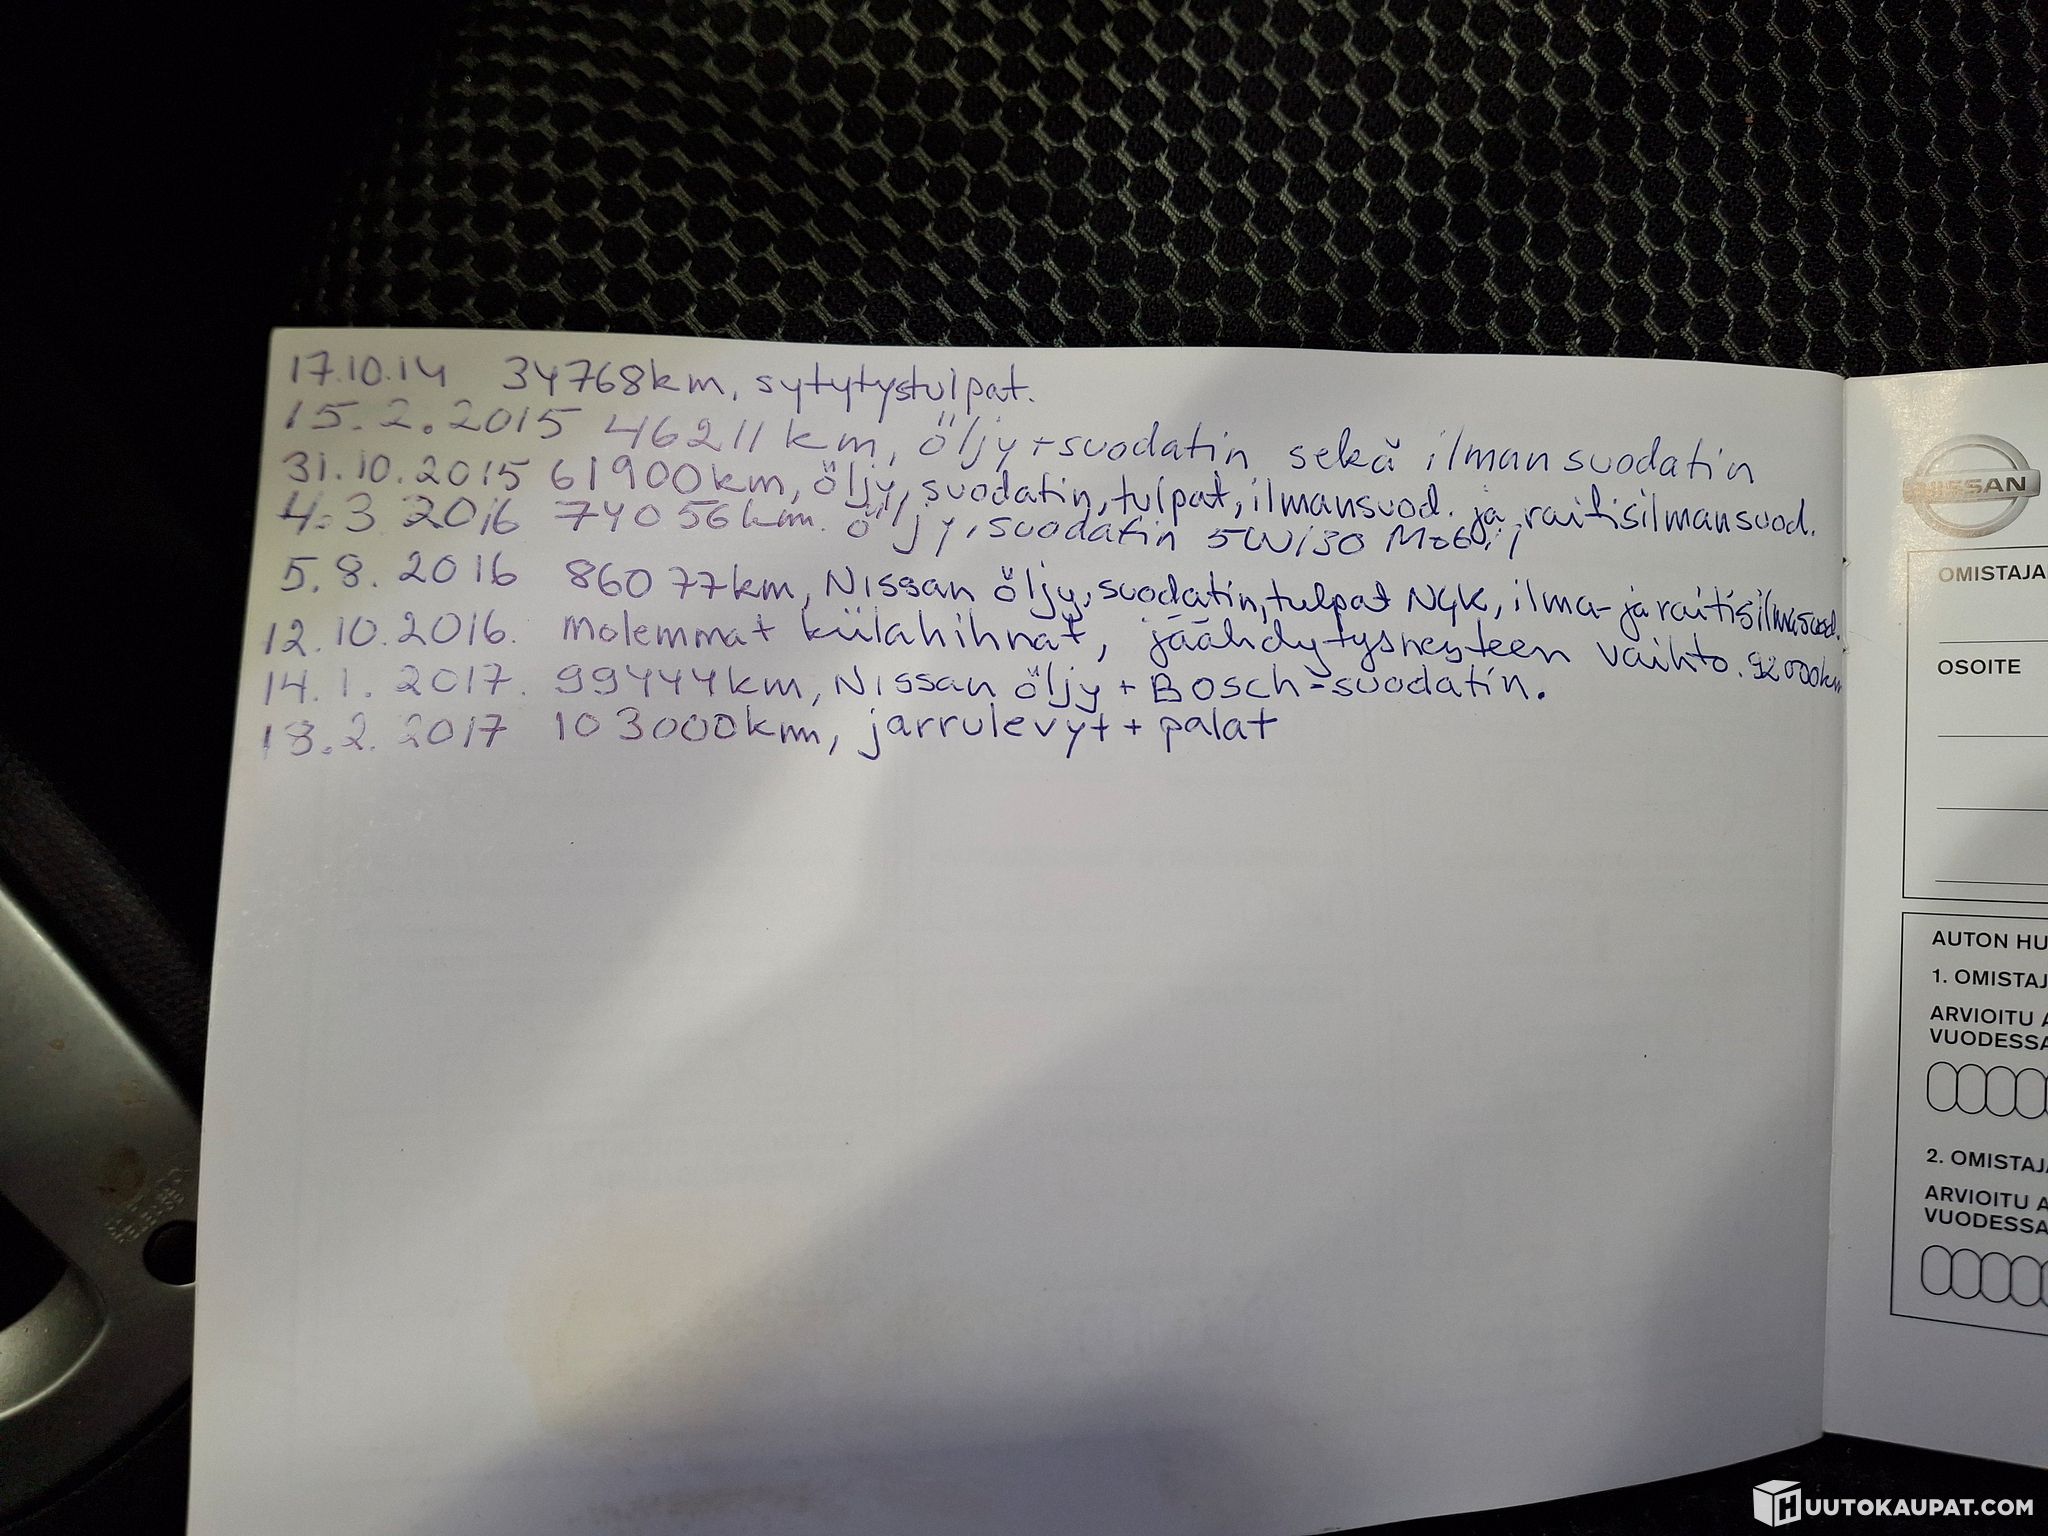 17.10.14 34768km, sytytystulpat.
15.2.2015 46211km, öljy+suodatin sekä ilmansuodatin
31.10.2015 61900km, öljy, suodatin, tulpat, ilmansuod. ja raitisilmansuod.
4.3 2016 74056km. öljy, suodatin 5W/30 Mobil
5.8.2016 86077km, Nissan öljy, suodatin, tulpat NGK, ilma- ja raitisilmasuod.
12.10.2016. Molemmat külahihnat, jäähdytysnesteen vaihto. 92000km
14.1.2017. 99444km, Nissan öljy + Bosch-suodatin.
18.2.2017 103000km, jarrulevyt + palat
NISSAN
OMISTAJA
OSOITE
AUTON HU
1. OMISTAJ
ARVIOITU A
VUODESSA
2. OMISTAJ
ARVIOITU A
VUODESSA
HUUTOKAUPAT.COM